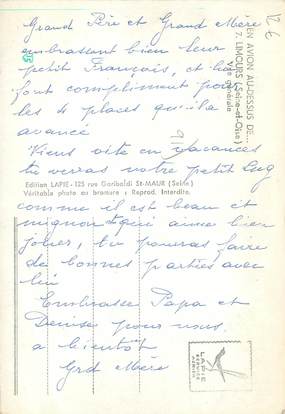 Grand Père et Grand Mère
embrassent bien leur
petit François, et lui
font compliment pour
les 4 places qu'il a
avancé
Viens vite en vacances
tu verras notre petit
comme il est beau et
mignon et qui aime bien
jouer, tu pourras faire
de bonnes parties avec
lui
Embrasse Papa et
Denise pour nous
a bientôt
Grd Mère
EN AVION AU-DESSUS DE...
7. LIMOURS (Seine-et-Oise)
Vue générale
Edition LAPIE - 125 rue Garibaldi St-MAUR (Seine)
Véritable photo au bromure - Reprod. Interdite.
LAPIE
SERVICE
AERIEN